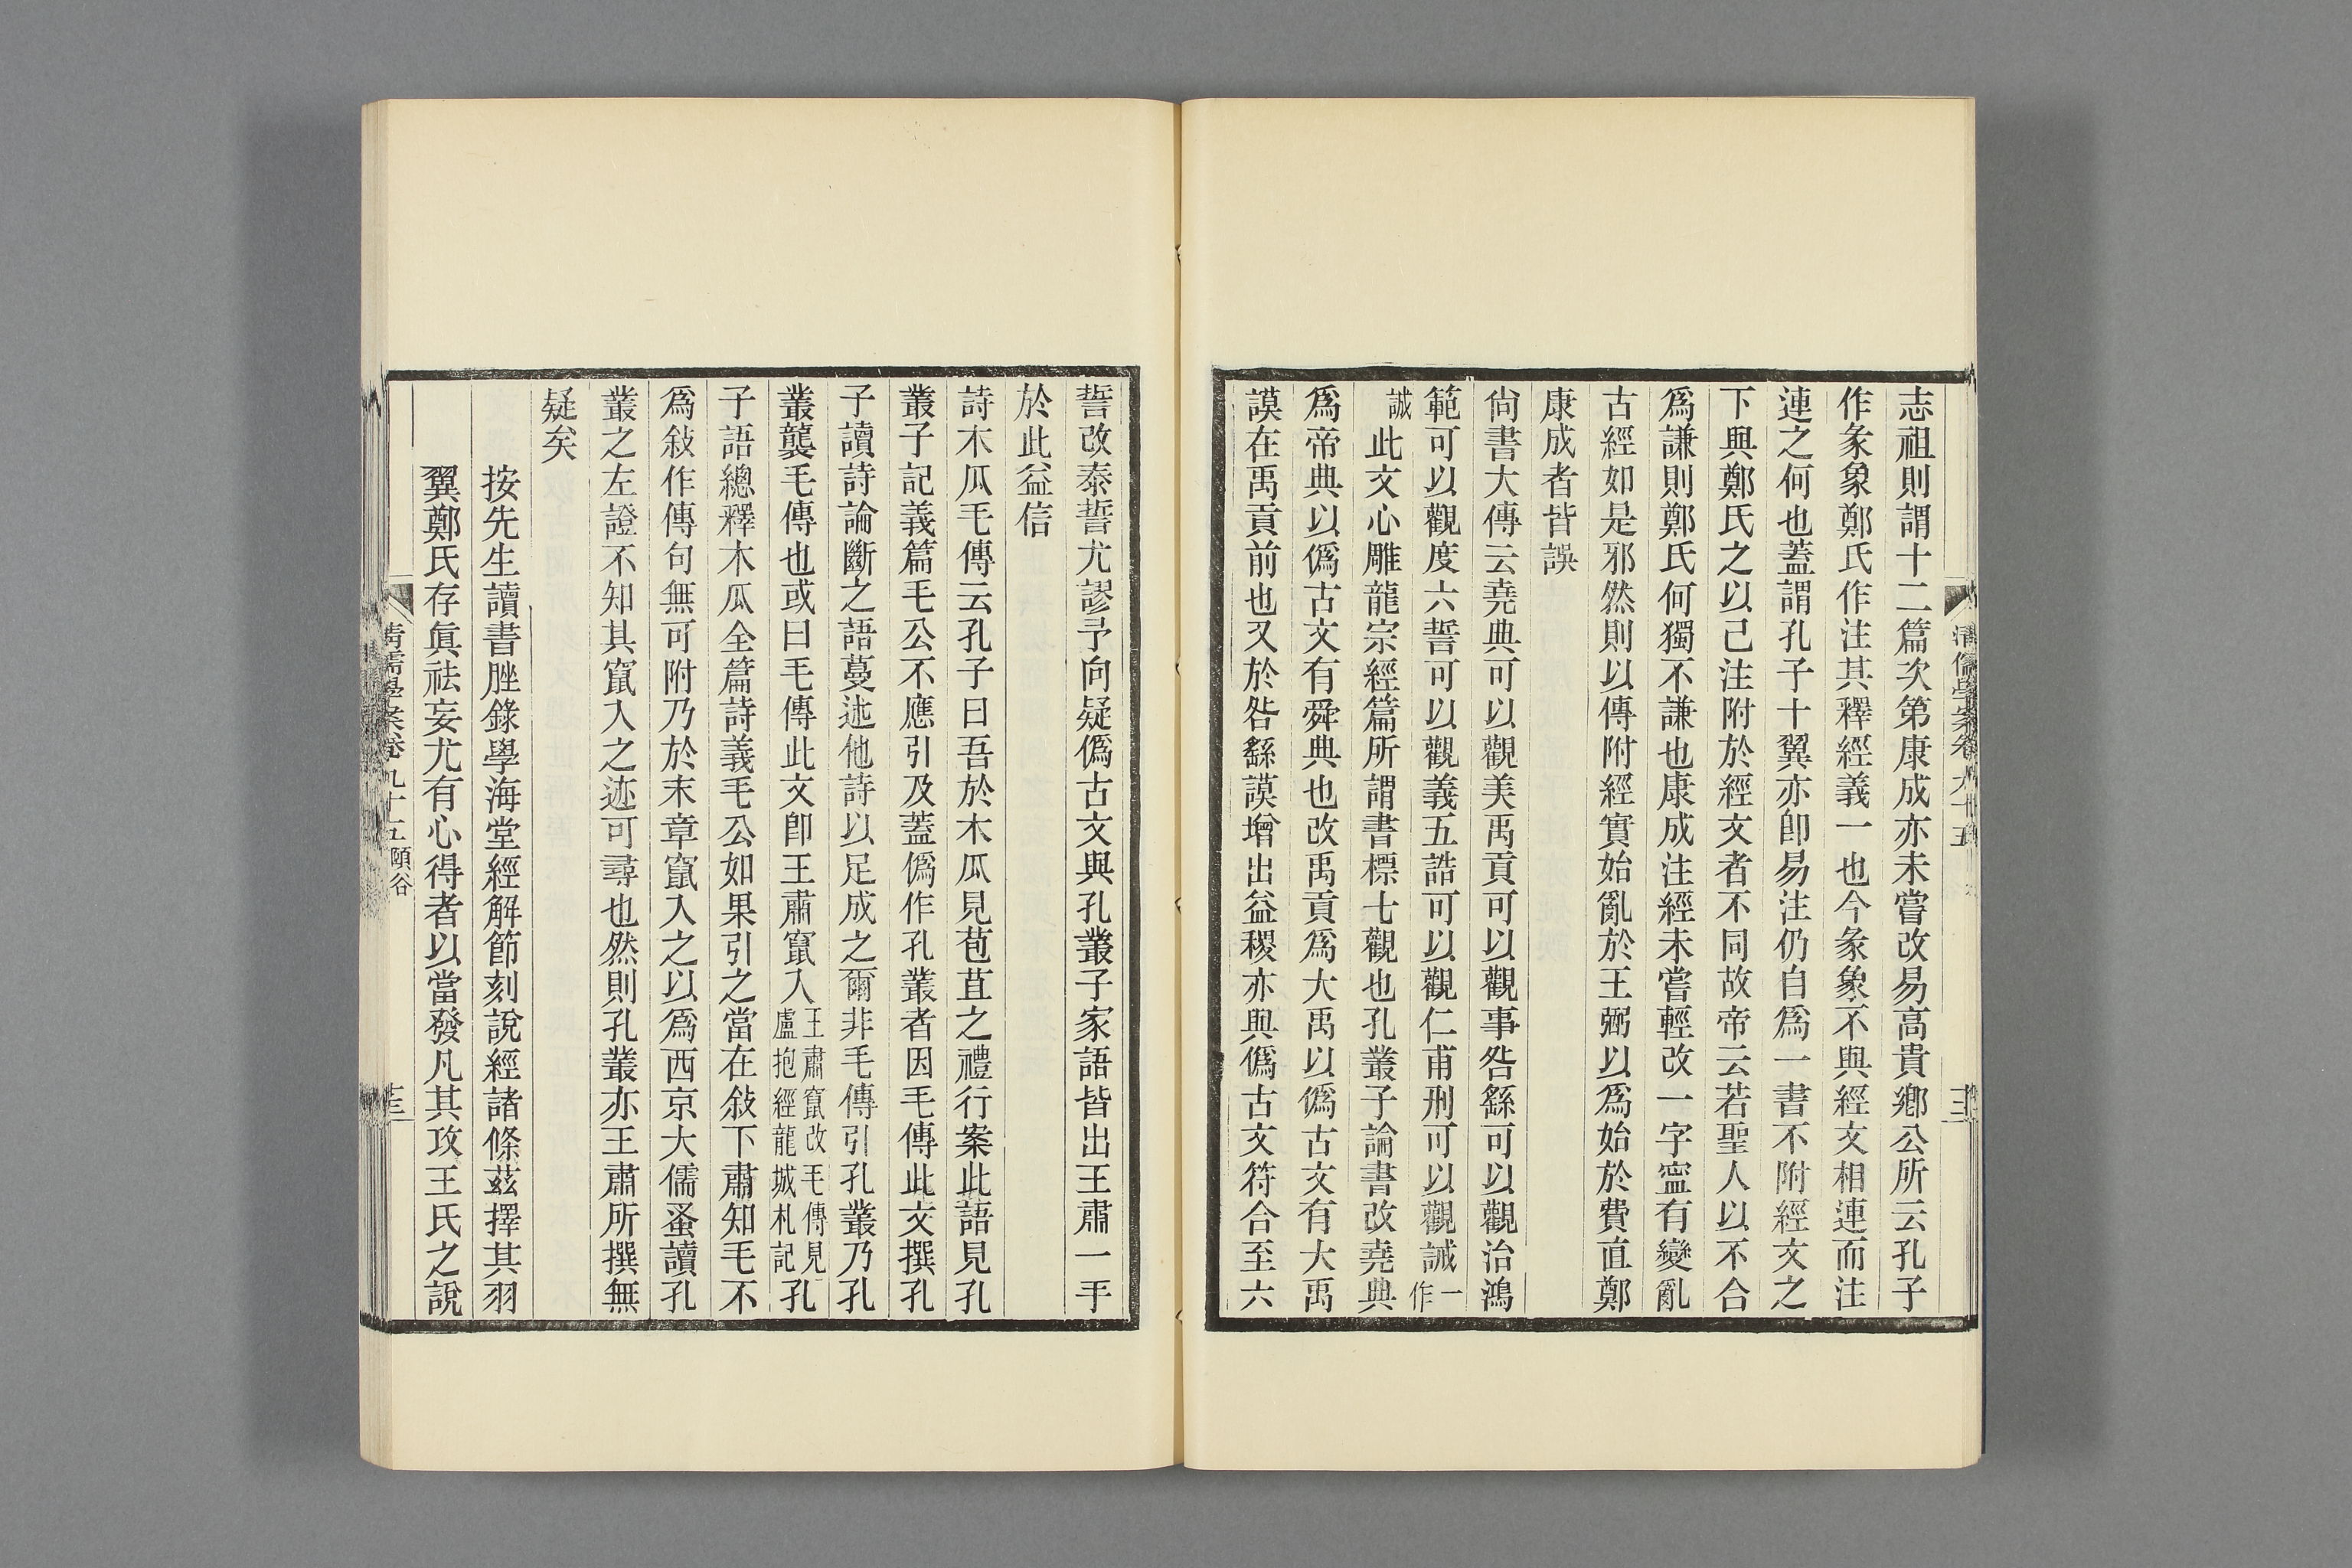 志祖則謂十二篇次第康成亦未嘗改易高貴鄉公所云孔子
作彖象鄭氏作注其釋經義一也今彖象不與經文相連而注
連之何也蓋謂孔子十翼亦卽易注仍自爲一書不附經文之
下與鄭氏之以己注附於經文者不同故帝云若聖人以不合
爲謙則鄭氏何獨不謙也康成注經未嘗輕改一字寍有變亂
古經如是邪然則以傳附經實始亂於王弼以爲始於費直鄭
康成者皆誤
尙書大傳云堯典可以觀美禹貢可以觀事咎繇可以觀治鴻
範可以觀度六誓可以觀義五誥可以觀仁甫刑可以觀誡一作
誠此文心雕龍宗經篇所謂書標七觀也孔叢子論書改堯典
爲帝典以僞古文有舜典也改禹貢爲大禹以僞古文有大禹
謨在禹貢前也又於咎繇謨增出益稷亦與僞古文符合至六
誓改泰誓尤謬予向疑僞古文與孔叢子家語皆出王肅一手
於此益信
詩木瓜毛傳云孔子曰吾於木瓜見苞苴之禮行案此語見孔
叢子記義篇毛公不應引及蓋僞作孔叢者因毛傳此文撰孔
子讀詩論斷之語蔓述他詩以足成之爾非毛傳引孔叢乃孔
叢襲毛傳也或曰毛傳此文卽王肅竄入王肅竄改毛傳見盧抱經龍城札記孔
子語總釋木瓜全篇詩義毛公如果引之當在敍下肅知毛不
爲敍作傳句無可附乃於末章竄入之以爲西京大儒蚤讀孔
叢之左證不知其竄入之迹可尋也然則孔叢亦王肅所撰無
疑矣
按先生讀書脞錄學海堂經解節刻說經諸條茲擇其羽
翼鄭氏存眞祛妄尤有心得者以當發凡其攻王氏之說
清儒學案卷九十五 頤谷